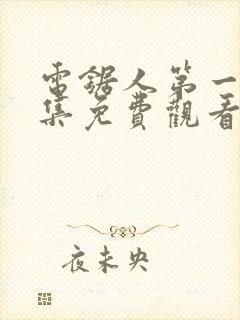 電鋸人第一
集免費觀看
夜未央